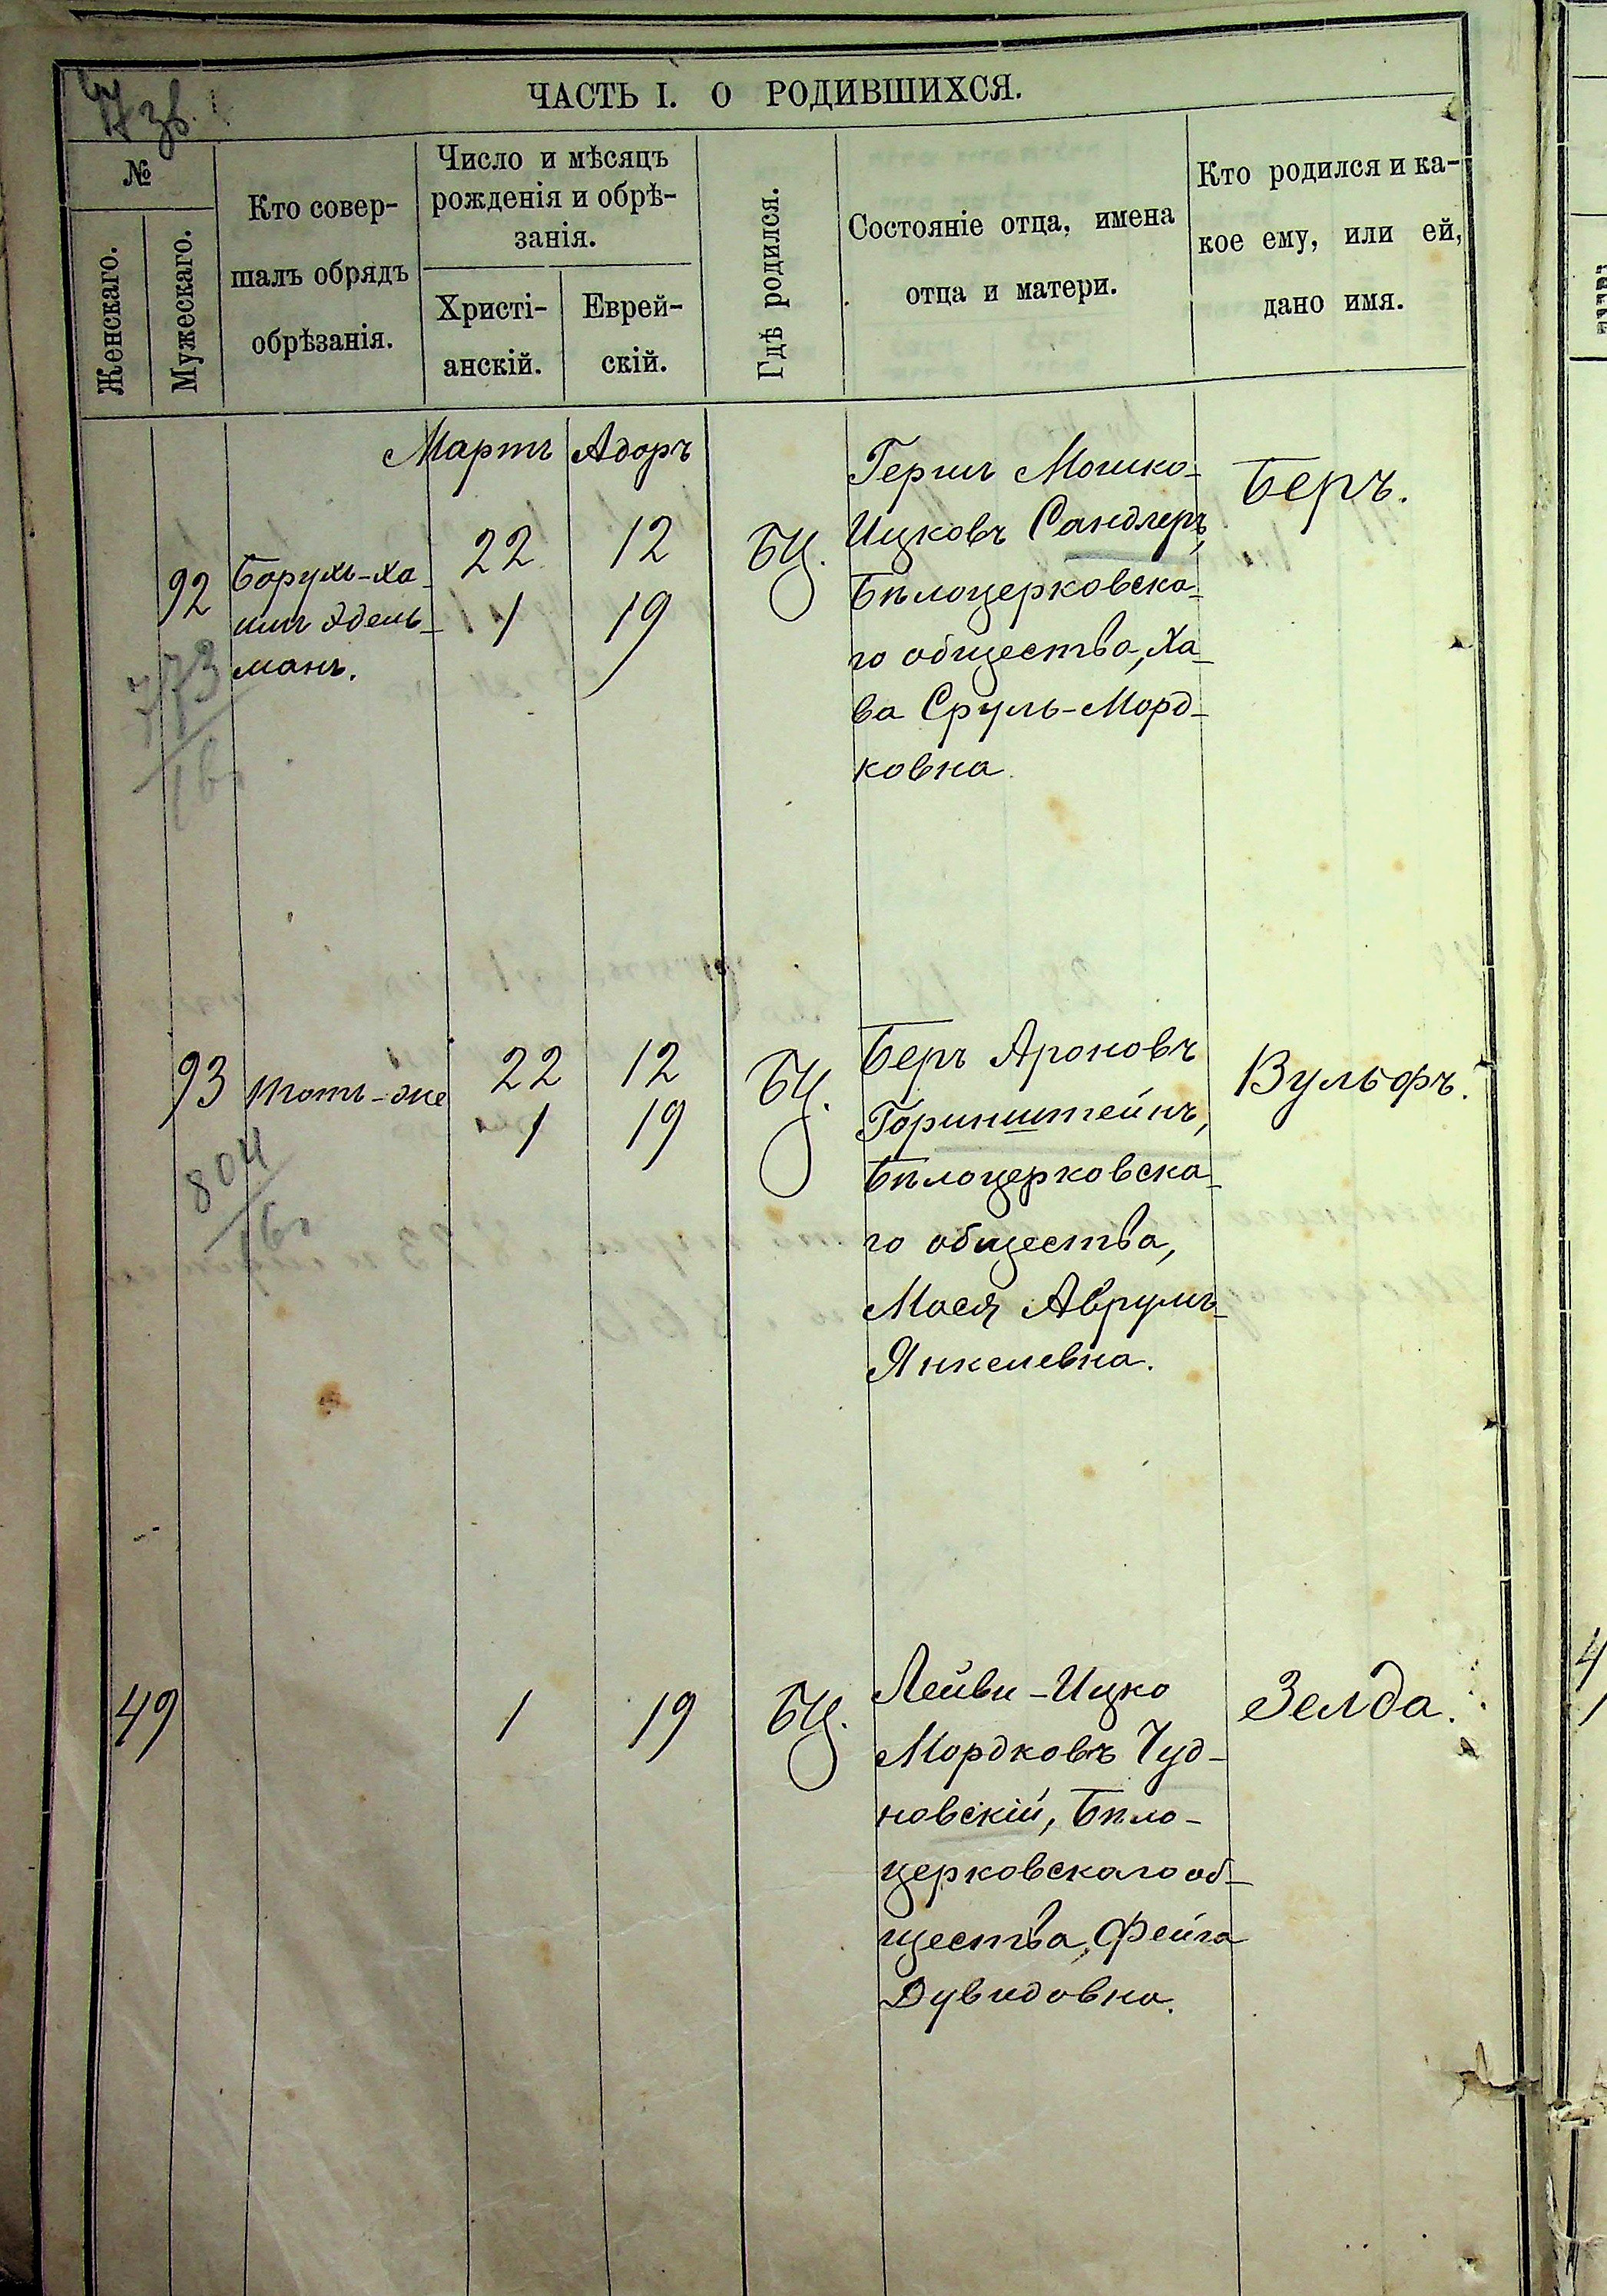 ЧАСТЬ I. О РОДИВШИХСЯ.
№
Женскаго.
Мужескаго.
Кто совер-
шалъ обрядъ
обрѣзанія.
Число и мѣсяцъ
рожденія и обрѣ-
занія.
Христі-
анскій.
Еврей-
скій.
Гдѣ родился.
Состояніе отца, имена
отца и матери.
Кто родился и ка-
кое ему, или ей,
дано имя.
Мартъ Адоръ
92
Борухъ-Ха-
имъ Эдель-
манъ.
773
22 12
1 19
БЦ.
Гершъ Мошко-
Ицковъ Сандлеръ,
Бѣлоцерковска-
го общества, Ха-
ва Сруль-Морд-
ковна.
Беръ.
93 тотъ-же
804
22 12
1 19
БЦ.
Беръ Ароновъ
Горинштейнъ,
Бѣлоцерковска-
го общества,
Мася Аврумъ-
Янкелевна.
Вульфъ.
49
1 19
БЦ.
Лейви-Ицко
Мордковъ Чуд-
новскій, Бѣло-
церковскаго об-
щества, Фейга
Дувидовна.
Зелда.